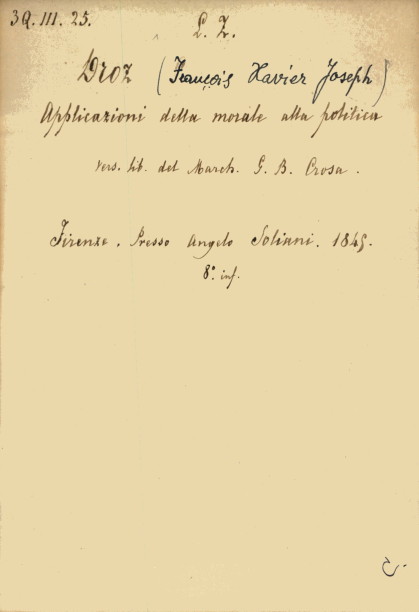 3Q. III. 25.
L. Z.
Droz (François Xavier Joseph)
Applicazioni della morale alla politica
vers. lib. del March. G. B. Crosa.
Firenze. Presso Angelo Soliani. 1845.
8° inf.